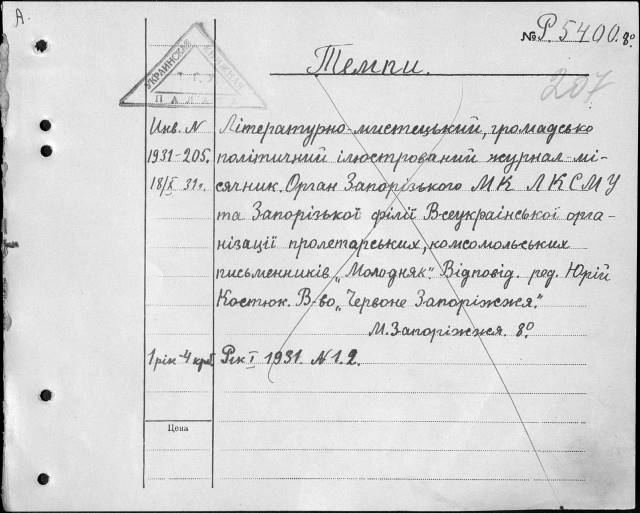 А.
№ Р.5400.8º
Темпи.
207
УКРАИНСКАЯ КНИЖНАЯ
ПАЛАТА
Инв. N
1931-205.
18/X 31 г.
Літературно-мистецький, громадсько
політичний ілюстрований журнал-мі-
сячник. Орган Запорізького МК ЛКСМУ
та Запорізької філії Всеукраїнської орга-
нізації пролетарських, комсомольських
письменників „Молодняк“ Відповід. ред. Юрій
Костюк. В-во „Червоне Запоріжжя.“
М. Запоріжжя. 8º
1 рік-4 крб.
Рік I 1931. N 1. 2.
Цена